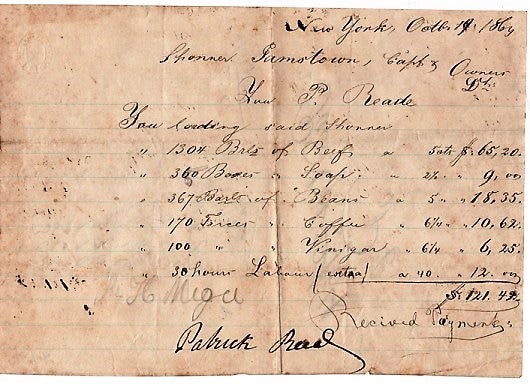 New York, Octb. 19, 1864
Shonner Jamstown, Capt & Owners
Dr.
Too P. Reade
Fow loading said Shonner
" 1304 Brls of Beef a 5cts $. 65,20.
" 360 Boxes " Soap " 2½ " " 9,00
" 367 Barls of Beans a 5 " " 18,35.
" 170 Tirces " Coffee " 6¼ " " 10,62
" 100 " " Vinigar " 6¼ " 6,25.
" 30 hours Labour (extra) a 40. " 12.00
$. 121.42
Recived Payment
Patrick Read